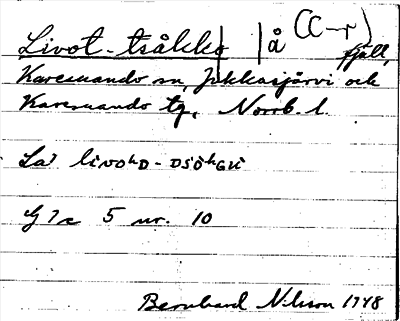 Livot-tsåkko |å (C-r) fjäll,
Karesuando sn, Jukkasjärvi och
Karesuando tg, Norrb. l.
La) livoʰD - DSÖʰGU
G 7c 5 nr. 10
Bernhard Nilsson 1948